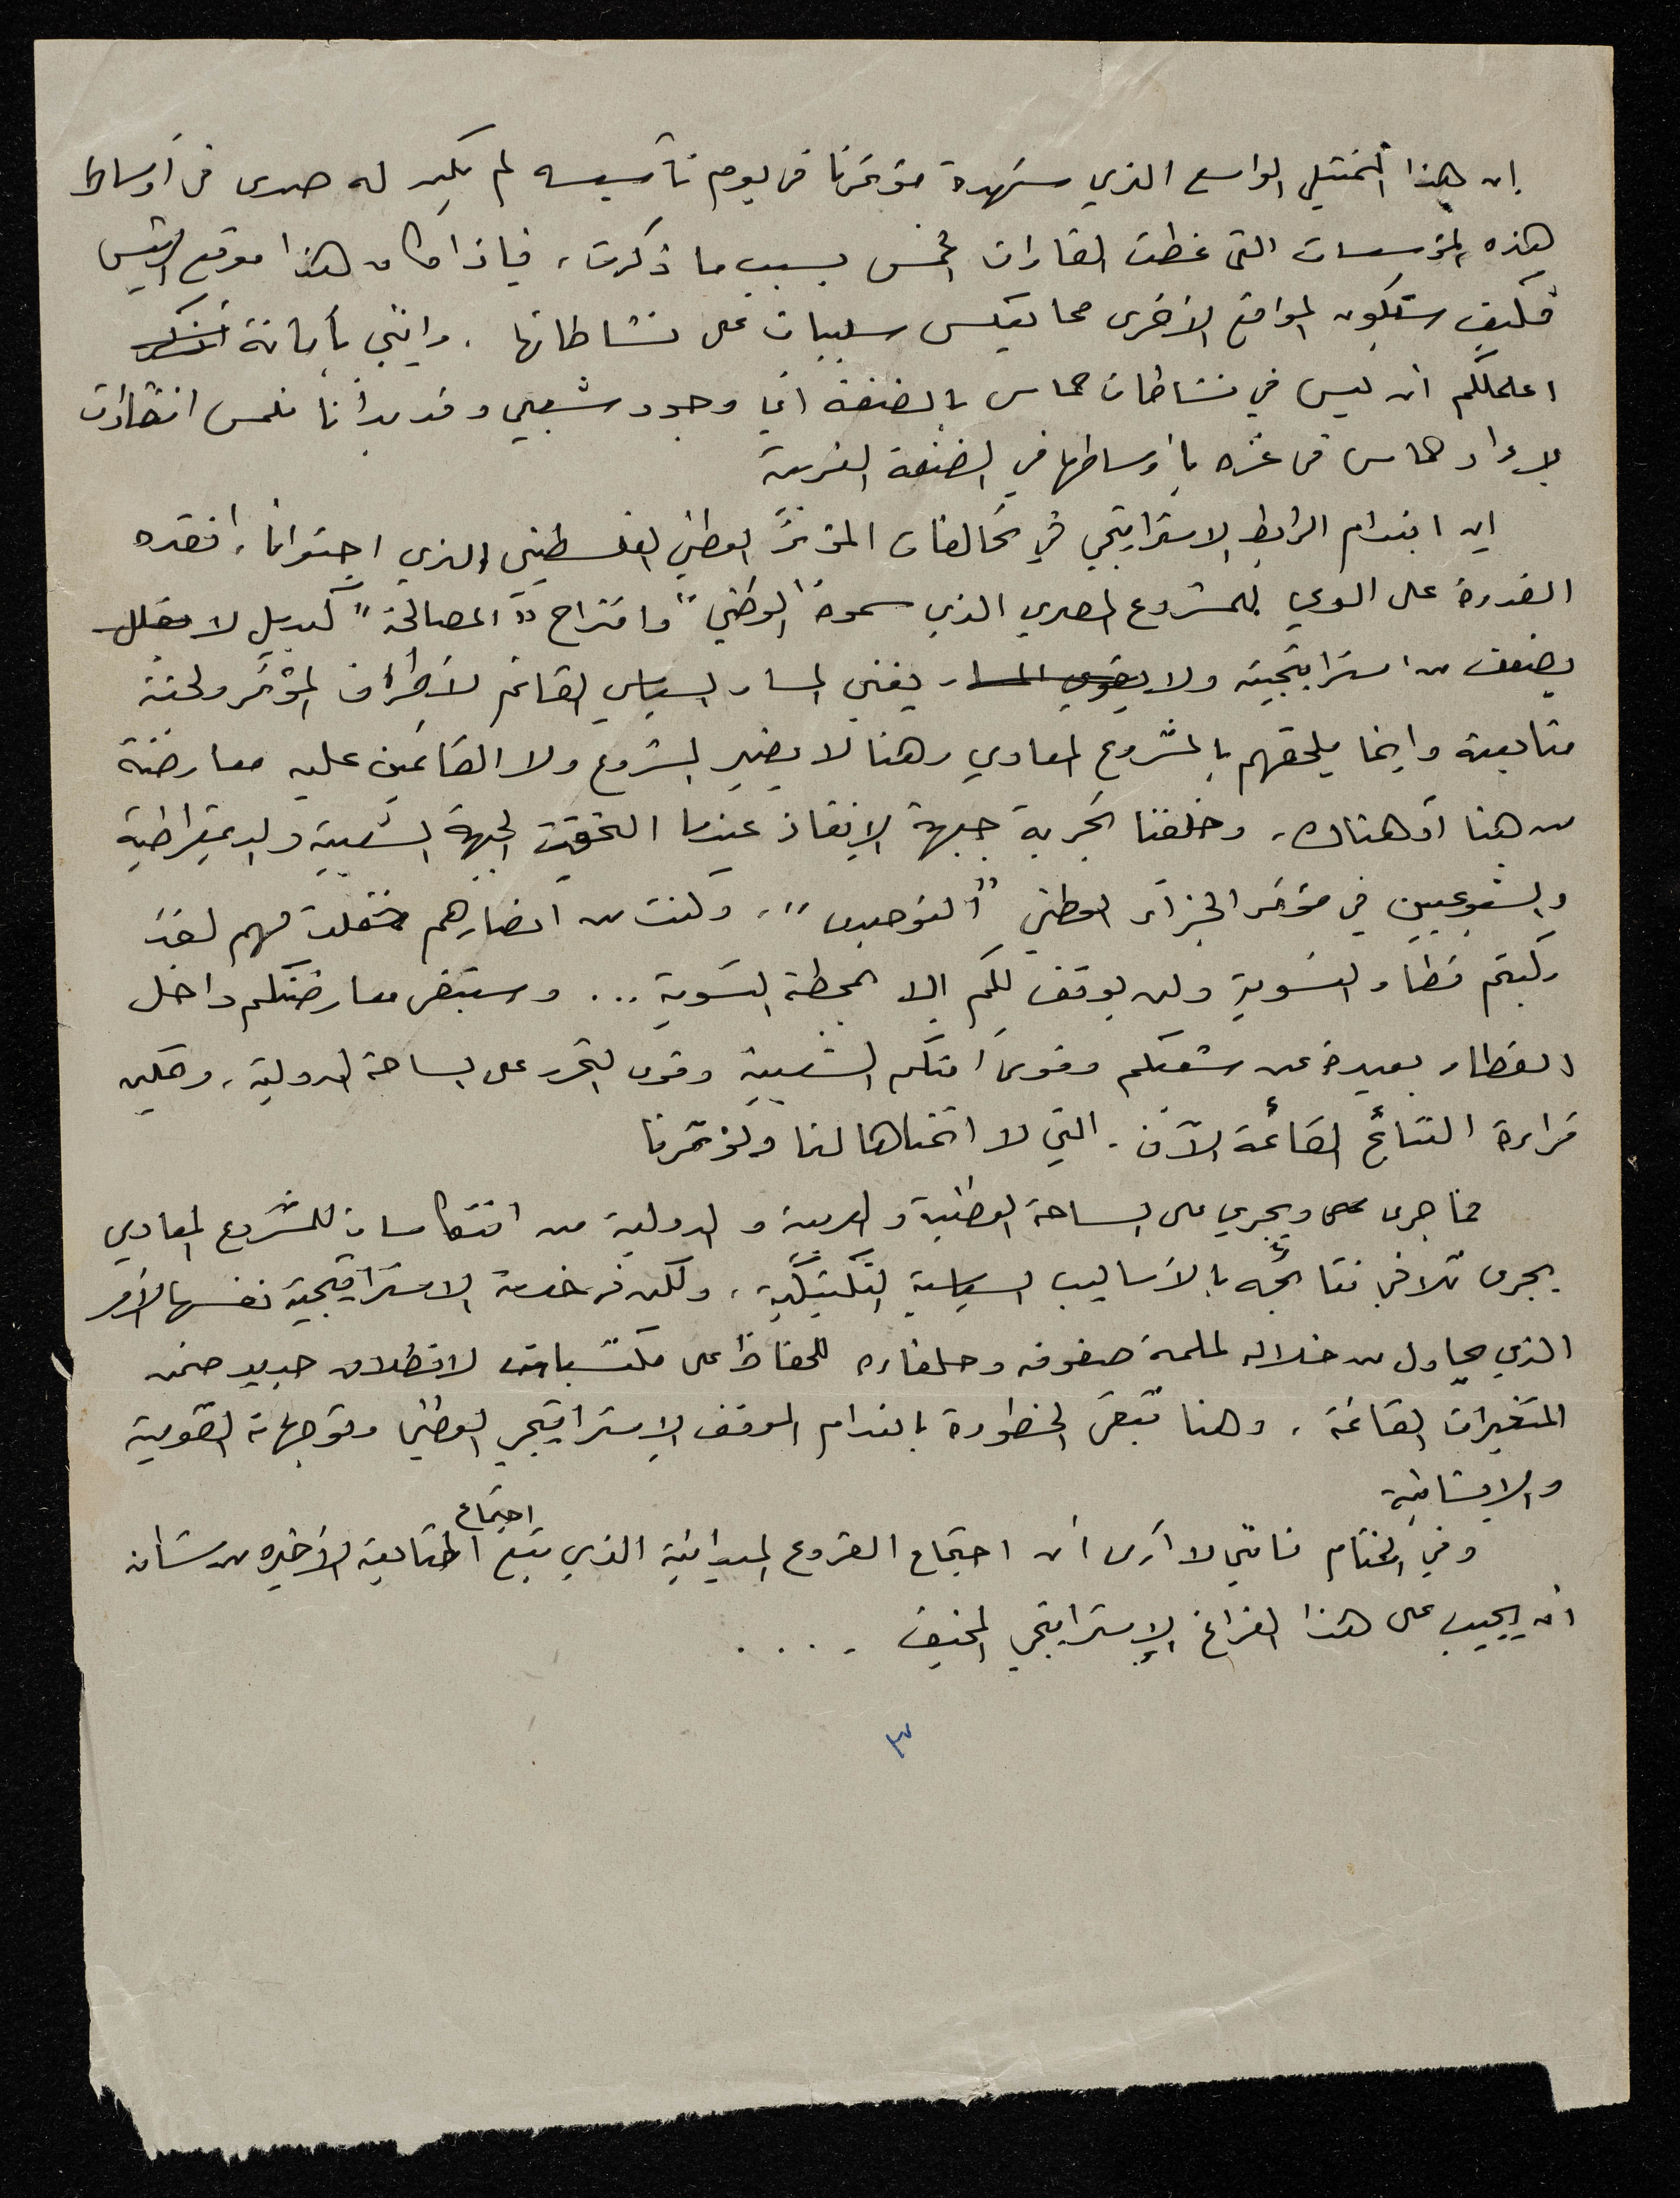 ان هذا التمثيل الواسع الذي شهده مؤتمرنا في يوم تأسيسه لم يكن له صدى في أوساط
هذه المؤسسات التي غطت القارات الخمس بسبب ما ذكرت، فإذا كان هذا موقع الرئيس
فكيف ستكون المواقع الأخرى مما يعكس سلبيات على نشاطاتها. وانني بأمانة
اعلمكم ان ليس في نشاطات حماس بالضفة أي وجود شعبي وقد بدأنا نلمس انتقادات
حماس في غزه بأوساطها في الضفة الغربية
ان انعدام الرابط الاستراتيجي في تحالفات المؤتمر الوطني الفلسطيني الذي احتوانا، افقده
القدرة على الوعي للمشروع المصري الذي سموه "الوطني" واقتراح "المصالحة" كبديل لا
يضعف من استراتيجيته ولا يغني المسار السياسي القائم لأطراف المؤتمر ولجنة
متابعته وإنما يلحقهم بالمشروع المعادي وهنا لا يضير المشروع ولا القائمين عليه معارضة
من هنا أو هناك، وخلفنا تجربة جبهة الانقاذ عندما التحقت الجبهة الشعبية والديمقراطية
والشيوعيين في مؤتمر الجزائر الوطني "التوحيدي"، وكنت من انصارهم فقلت لهم لقد
ركبتم قطار التسوية ولن يوقف لكم إلا بمحطة التسوية... وستبقى معارضتكم داخل
القطار بعيدة عن شعبكم وقوى امتكم الشعبية وقوى التحرر على الساحة الدولية، ويمكن
قراءة النتائج القائمة الآن. التي لا اتمناها لنا ولمؤتمرنا
فما جرى ويجري على الساحة الوطنية والعربية والدولية من انتكاسات للمشروع المعادي
يجري تلافي نتائجه بالأساليب السياسية التكتيكية، ولكن في خدمة الاستراتيجية نفسها الأمر
الذي يحاول من خلاله لملمة صفوفه وحلفاءه للحفاظ على مكتسباته لانطلاق جديد ضمن
المتغيرات القائمة، وهنا تبقى الخطورة بانعدام الموقف الاستراتيجي الوطني وتوجهاته القومية
والانسانية
وفي الختام فانني لا أرى أن اجتماع الفروع الميدانية الذي تبع اجتماع المتابعة الأخيره من شأنه
أن يجيب على هذا الفراغ الاستراتيجي المخيف ....
٣